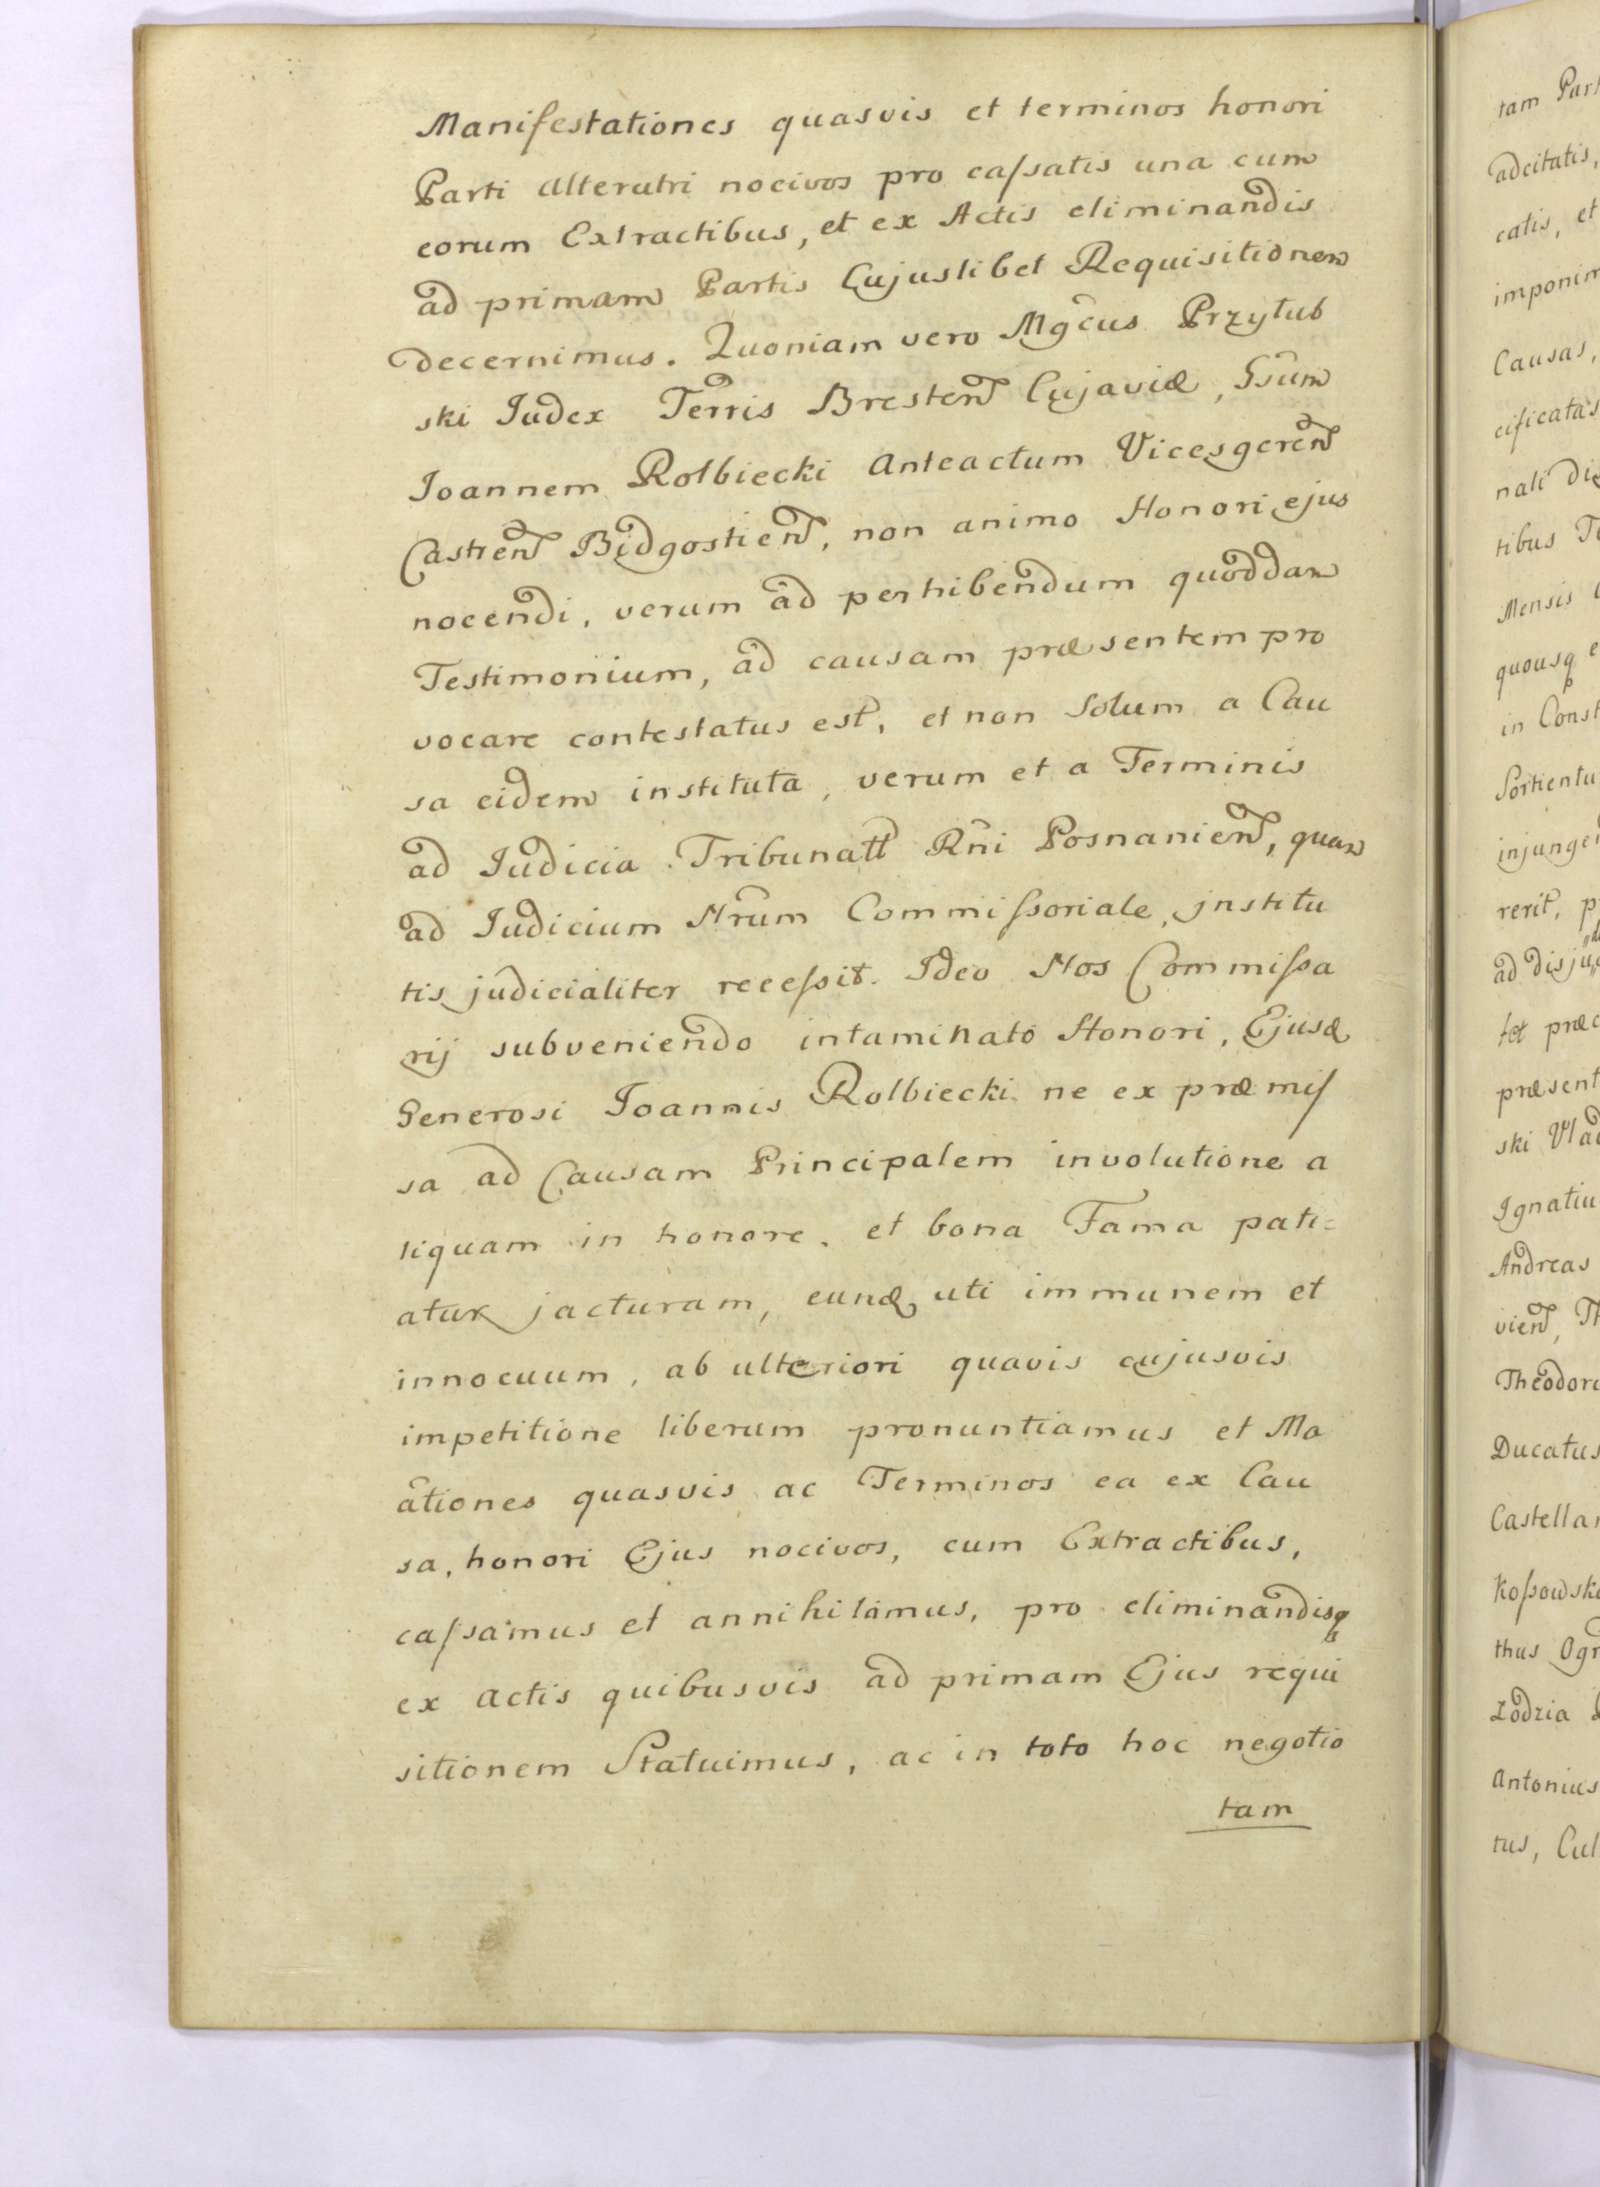 Manifestationes quasvis et terminos honori
Parti alterutri nocivos pro caſsatis una cum
eorum Extractibus, et ex Actis eliminandis
ad primam Partis Cujuslibet Requisitionem
decernimus. Quoniam vero Mgcus Przyłub
ski Judex Terris Bresten Cujaviæ, Gsum
Joannem Rolbiecki Anteactum Vicesgeren
Castren Bidgostien, non animo Honori ejus
nocendi, verum ad perhibendum quoddam
Testimonium, ad causam præsentem pro
vocare contestatus est, et non Solum a Cau
sa eidem instituta, verum et a Terminis
ad Judicia Tribunall Rni Posnanien, quam
ad Judicium Nrum Commiſsoriale, jnstitu
tis judicialiter receſsit. Ideo Nos Commiſsa
rij subveniendo intaminato Honori, Ejusq
Generosi Joannis Rolbiecki ne ex præmiſ
sa ad Causam Principalem involutione a
liquam in honore, et bona Fama pati=
atur jacturam, eunq uti immunem et
innocuum, ab ulteriori quavis cujusvis
impetitione liberum pronuntiamus et Ma
ationes quasvis ac Terminos ea ex Cau
sa, honori Ejus nocivos, cum Extractibus,
caſsamus et annihilamus, pro eliminandisq
ex Actis quibusvis ad primam Ejus requi
sitionem Statuimus, ac in toto hoc negotio
tam
tam
adcitatis,
catis, et
Causas,
tibus
Mensis
quousq
in
rerit,
ski
Andreas
vien,
Ducatus
thus
Antonius
tus,